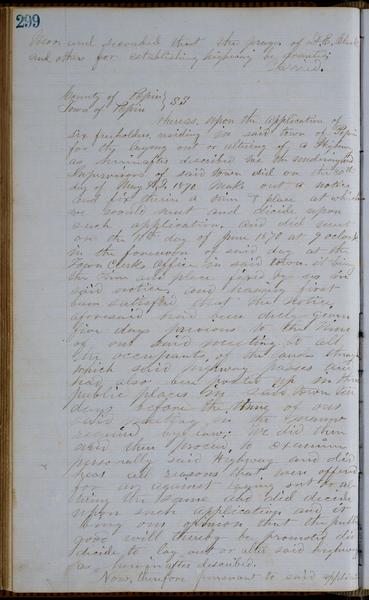 299
Mov and seconded that the prayer of D. C.
and others for establishing highway be granted
Carried.
County of Pepin } SS
Town of Pepin
Whereas, upon the application of
Six freeholders, residing in said town of Pepin
for the laying out or altering of a Highway
as hereinafter described we the undersigned
Supervisors of said town did on the 30th
day of May A.D. 1870 make out a notice
and fix therein a time & place at which
we would meet and decide upon
such application, and did meet
on the day of June 1870 at 9 oclock
in the forenoon of said day at the
Town Clerks office in said town it being
the time and place fixed by us in
said notice, and having first
been satisfied that the notice
aforesaid had been duly given
five days previous to the time
of our said meeting to all
the occupants of the lands through
which said highway passes and
had also been posted up in three
public places in said town ten
days before the time of our
said meeting in the manner
required by law: We did then
and there proceed to examine
personally said Highway and did
hear all reasons that were offered
for or against laying out or al-
tering the same and did decide
upon such application and it
being our opinion that the public
good will thereby be promoted did
decide to lay out or alter said highway
as hereinafter described.
Now, therefore pursuant to said